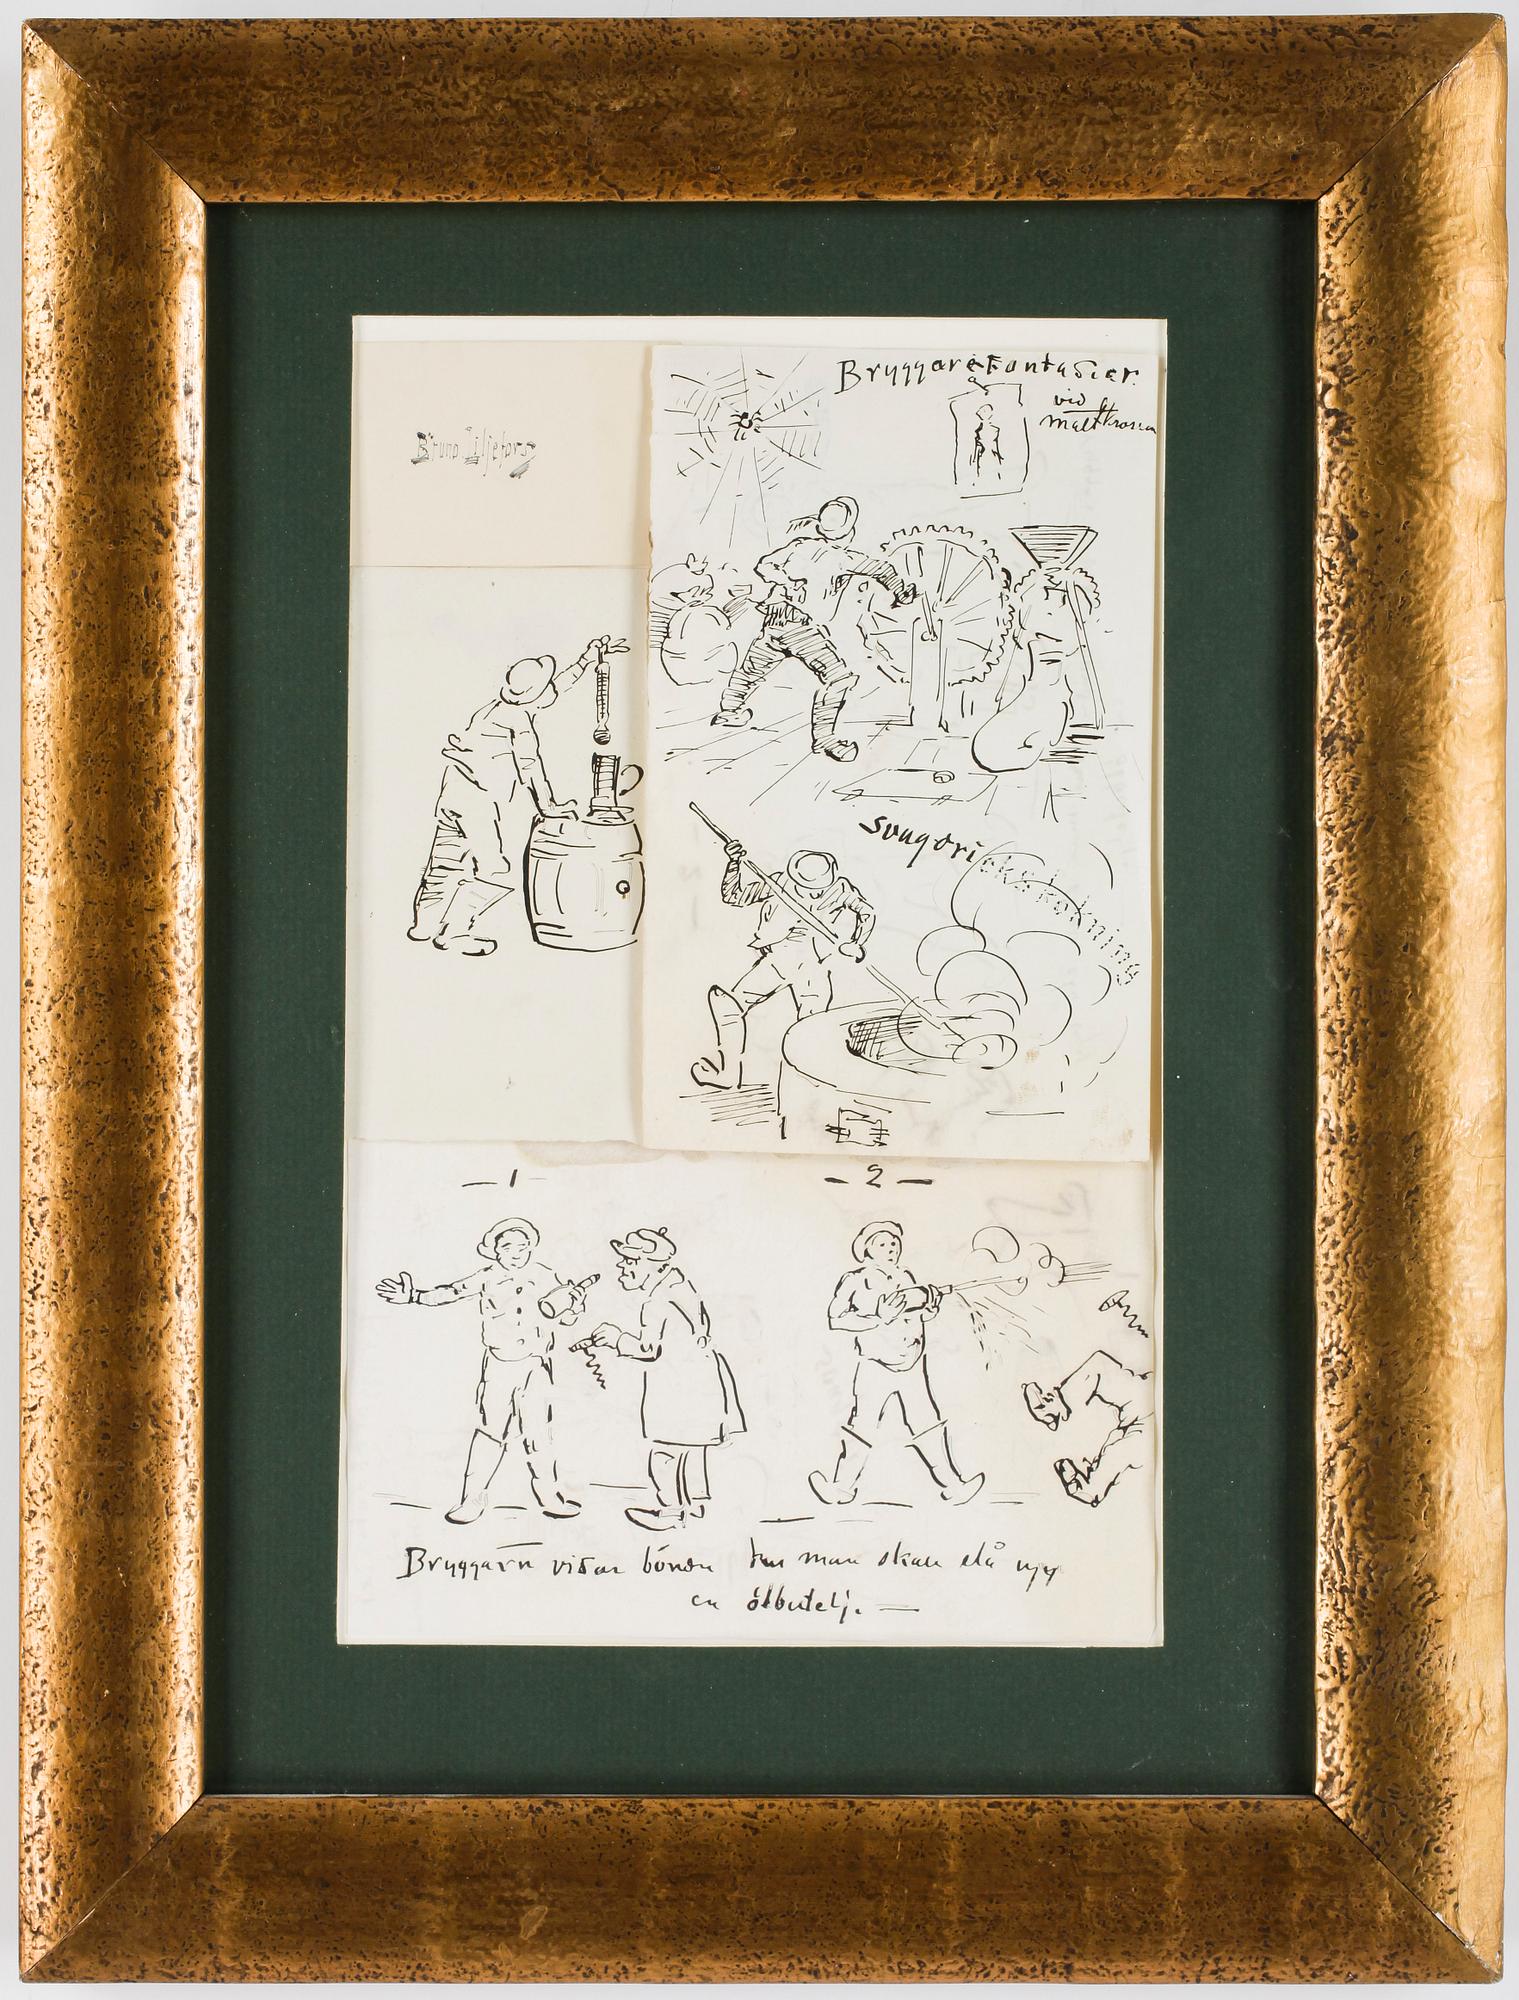 Bruno Liljefors
Bryggarefantasier.
vid
maltkrossen
svagdrickskokning
– 1 –
– 2 –
Bryggarn visar bonden hur man skall slå upp
en ölbutelj. —